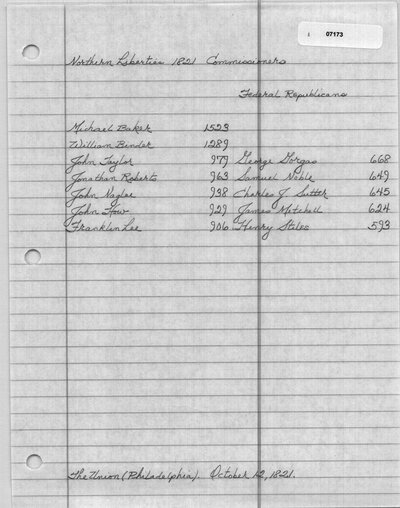 1 07173
Northern Liberties 1821 Commissioners
Federal Republicans
Michael Baker 1523
William Binder 1289
John Taylor 979 George Gorgas 668
Jonathan Roberts 963 Samuel Noble 649
John Naglee 938 Charles J. Sutter 645
John How 929 James Mitchell 624
Franklin Lee 906 Henry Stiles 593
The Union (Philadelphia). October 12, 1821.